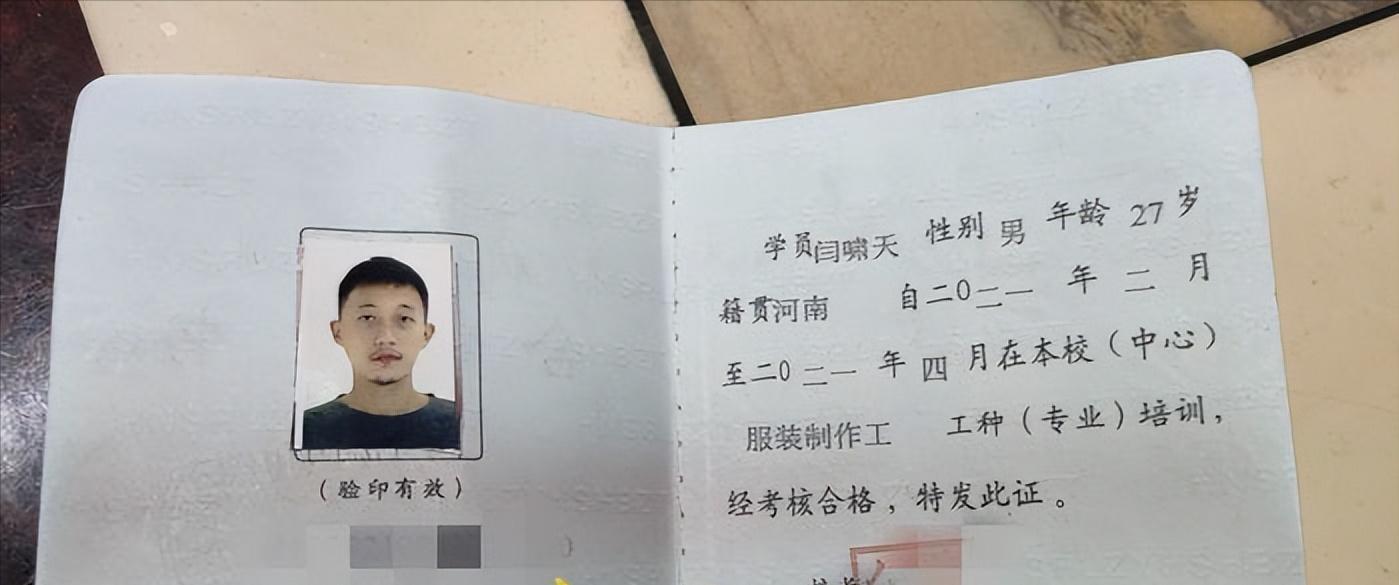 (验印有效)
学员闫啸天 性别 男 年龄 27 岁
籍贯河南 自二0二一 年 二 月
至二0二一 年 四 月在本校(中心)
服装制作工 工种(专业)培训,
经考核合格,特发此证。